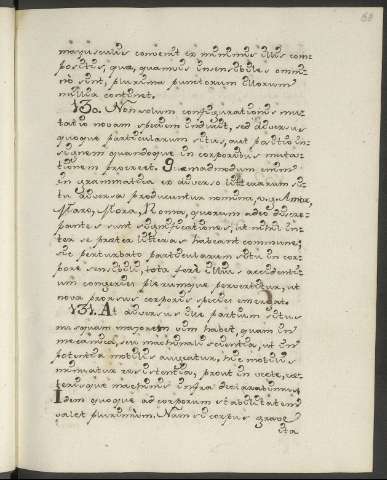 60
majusculis convenit ex minimis illis com-
positis, quæ, quamvis insensibiles omni-
no sint, plurima punctorum illorum
millia continet.
130. Non solum configurationis mu-
tatio novam speciem inducit, sed diversus
quoque particularum situs, aut positio in-
signem quandoque in corporibus muta-
tionem procreet. Quemadmodum enim
in grammatica ex diverso litterarum si-
tu diversa producuntur nomina, v.g. Amor,
Maro, Mora, Roma, quorum adeo discre-
pantes sunt significationes, ut nihil in-
ter se præter litteras habeant commune;
sic perturbato particularum situ in cor-
pore sensibili, tota fere illius accidenti-
um congeries plerumque pervertitur, ut
nova prorsus corporis species emergat.
131. At diversus iste partium situs
nusquam majorem vim habet, quam in
mecanica, seu machinali scientia, ut in
potentia motus augeatur, sic mobilis
minuatur resistentia, prout in vecte, cæ-
terisque machinis infra declarabimus.
Idem quoque ad corporum stabilitatem
valet plurimum. Nam si corpus grave
ita